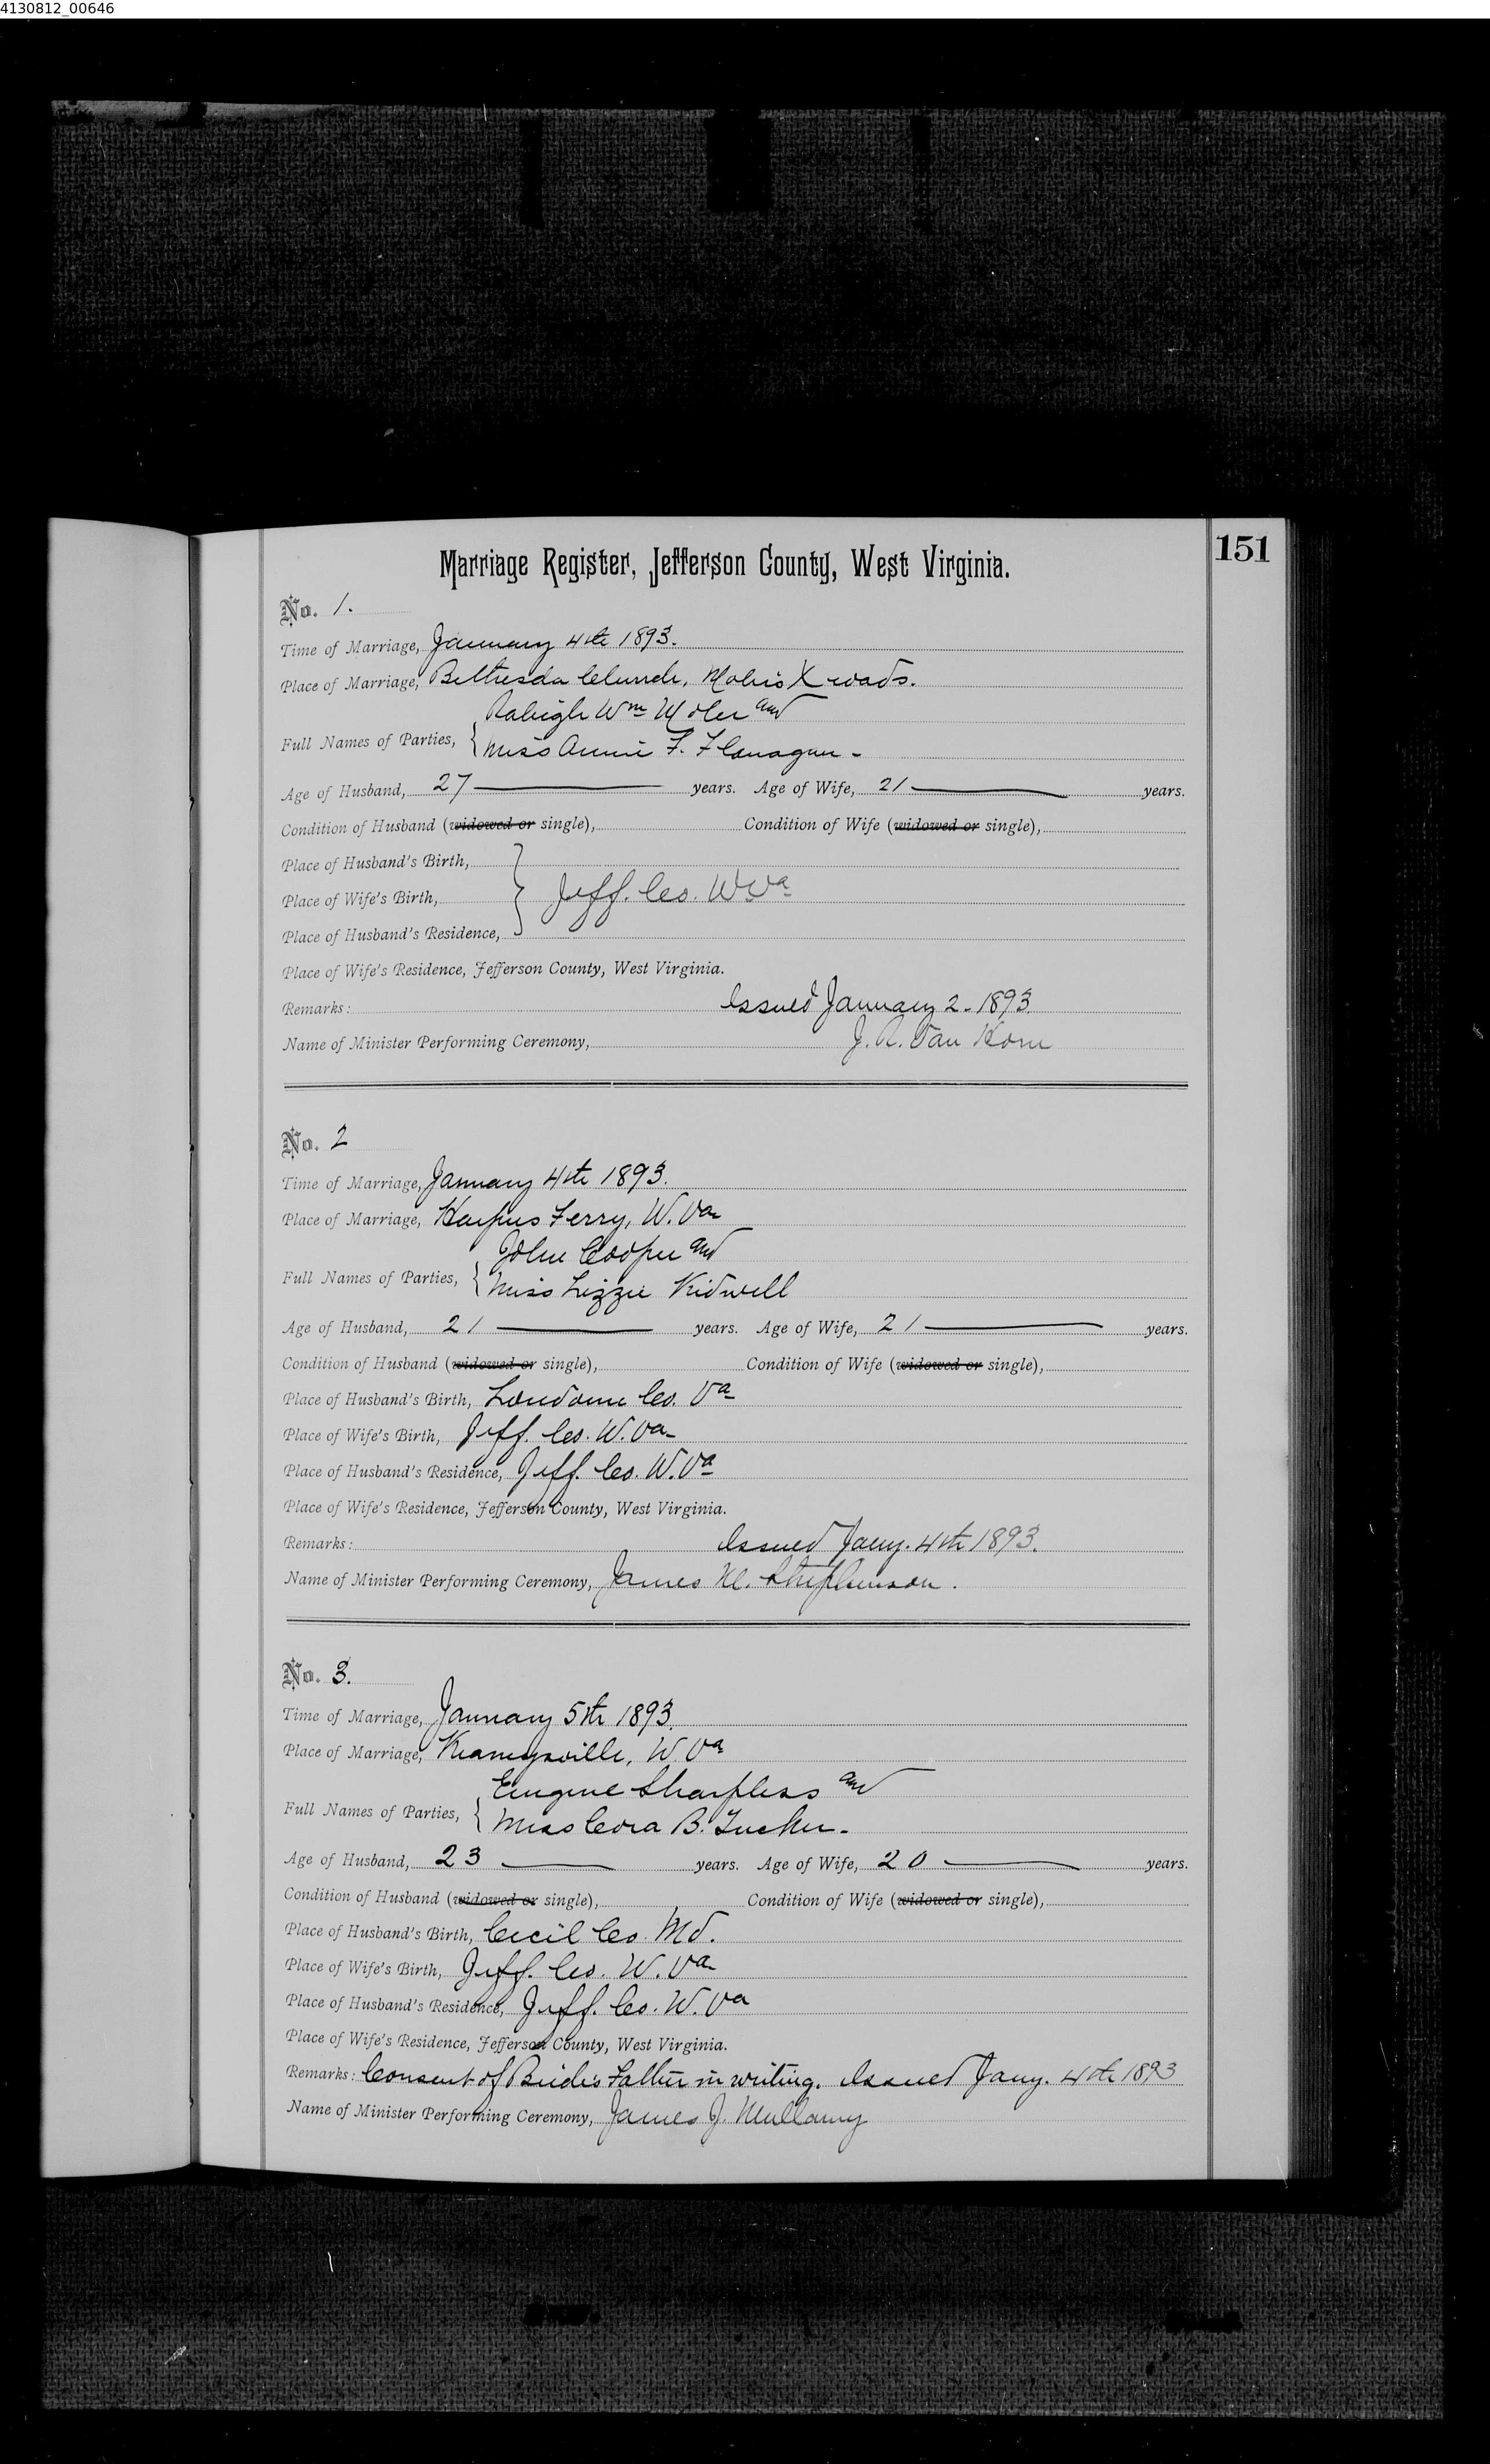 4130812_00646
151
Marriage Register, Jefferson County, West Virginia.
No. 1.
Time of Marriage, January 4th 1893.
Place of Marriage, Bethesda Church, Molers X roads.
Raleigh Wm Moler and
Full Names of Parties, { Miss Annie F. Flanagan -
Age of Husband, 27 years. Age of Wife, 21 years.
Condition of Husband (widowed or single), Condition of Wife (widowed or single),
Place of Husband's Birth,
Place of Wife's Birth, } Jeff. Co. W Va
Place of Husband's Residence,
Place of Wife's Residence, Jefferson County, West Virginia.
Remarks: Issued January 2 - 1893
Name of Minister Performing Ceremony, J. R. Van Horn
No. 2
Time of Marriage, January 4th 1893.
Place of Marriage, Harpers Ferry, W. Va
John Cooper and
Full Names of Parties, { Miss Lizzie Kidwell
Age of Husband, 21 years. Age of Wife, 21 years.
Condition of Husband (widowed or single), Condition of Wife (widowed or single),
Place of Husband's Birth, Loudoun Co. Va
Place of Wife's Birth, Jeff. Co. W. Va
Place of Husband's Residence, Jeff. Co. W. Va
Place of Wife's Residence, Jefferson County, West Virginia.
Remarks: Issued Jany. 4th 1893.
Name of Minister Performing Ceremony, James M. Stephenson.
No. 3.
Time of Marriage, January 5th 1893.
Place of Marriage, Kearneysville, W. Va
Eugene Sharpless and
Full Names of Parties, { Miss Cora B. Tucker -
Age of Husband, 23 years. Age of Wife, 20 years.
Condition of Husband (widowed or single), Condition of Wife (widowed or single),
Place of Husband's Birth, Cecil Co. Md.
Place of Wife's Birth, Jeff. Co. W. Va
Place of Husband's Residence, Jeff. Co. W. Va
Place of Wife's Residence, Jefferson County, West Virginia.
Remarks: Consent of Bride's Father in writing. Issued Jany. 4th 1893
Name of Minister Performing Ceremony, James J. Mullany